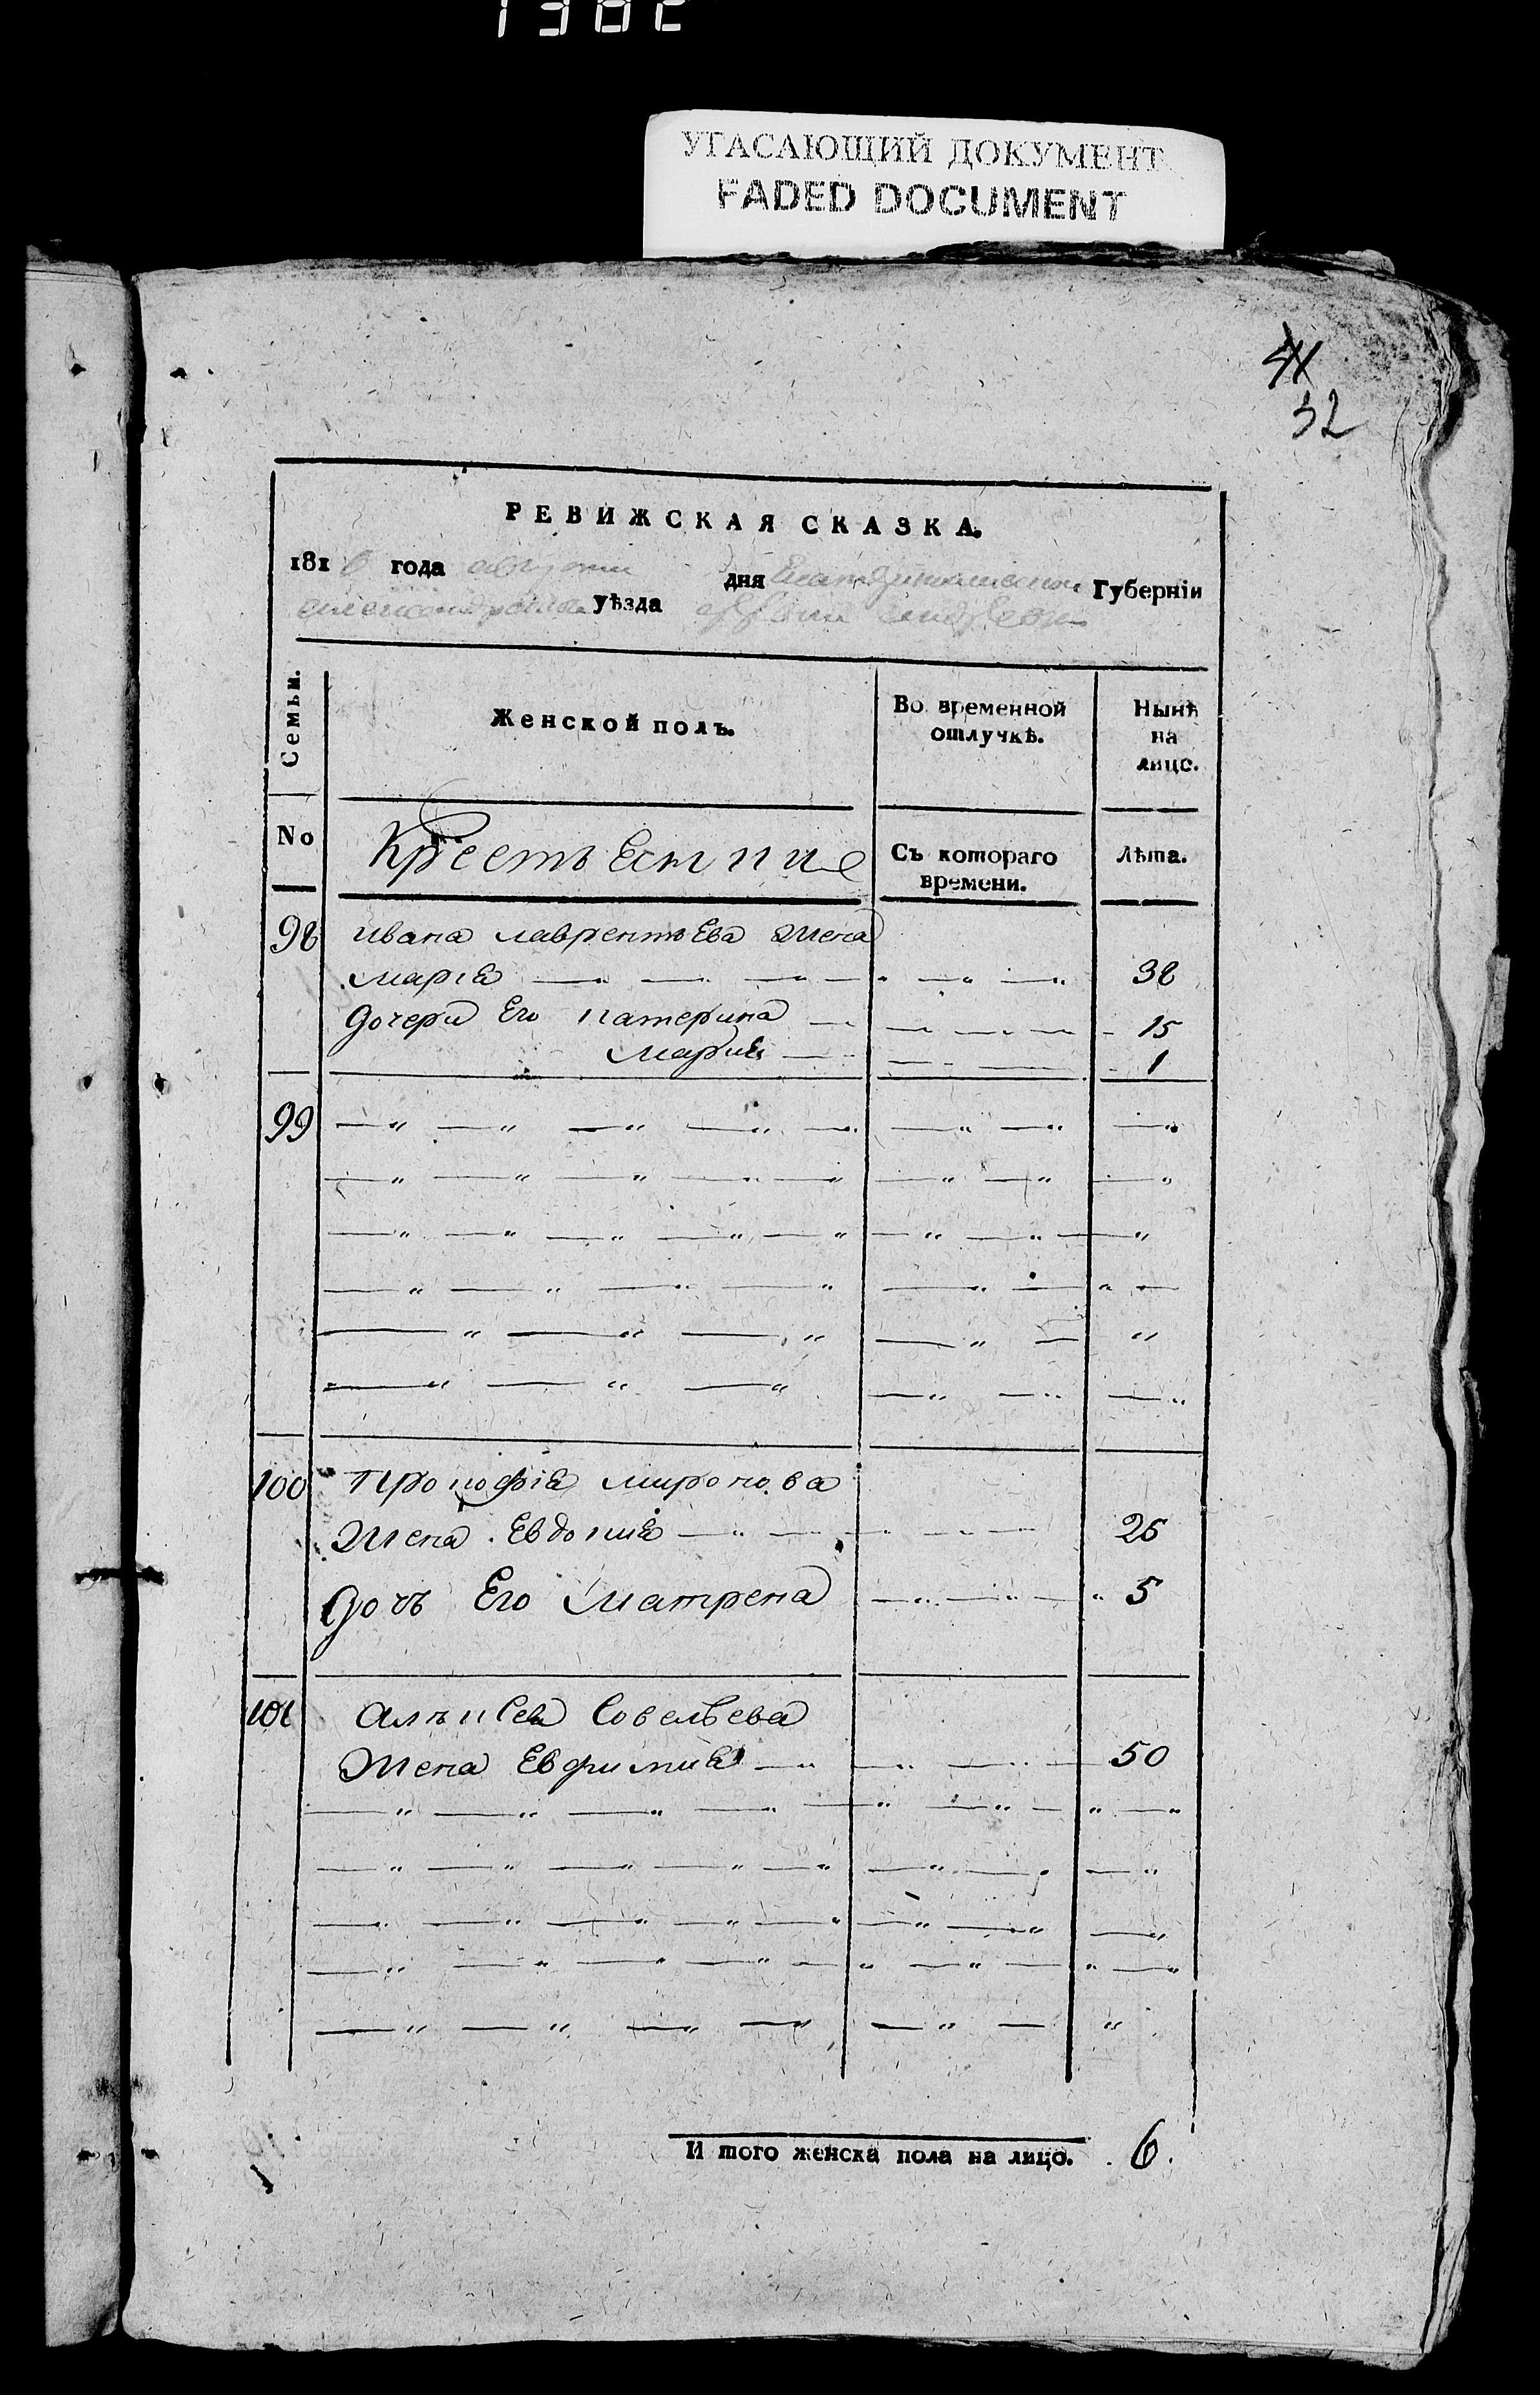 УГАСАЮЩИЙ ДОКУМЕНТ
FADED DOCUMENT
32
РЕВИЖСКАЯ СКАЗКА.
1816 года августа дня Екатеринославской Губернїи
уѣзда
Семьи.
Женской полъ.
Во временной отлучкѣ.
Нынѣ на лицо.
No
Крестьяния
Съ котораго времени.
Лѣта.
98 ивана лаврентьева жена
Марїя 38
дочери Его катерина 15
Мария 1
99
100 Прокофїя миронова
Жена Евдокия 26
дочь Его Матрена 5
101 Алѣксея Совельева
Жена Евфимия 50
И того женска пола на лицо. 6.